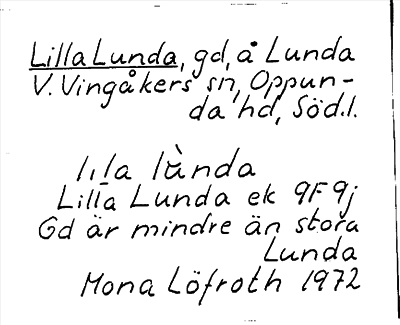 Lilla Lunda, gd, å Lunda
V. Vingåkers sn, Oppun-
da hd, Söd.l.
lıla lùnda
Lilla Lunda ek 9F9j
Gd är mindre än stora
Lunda
Mona Löfroth 1972